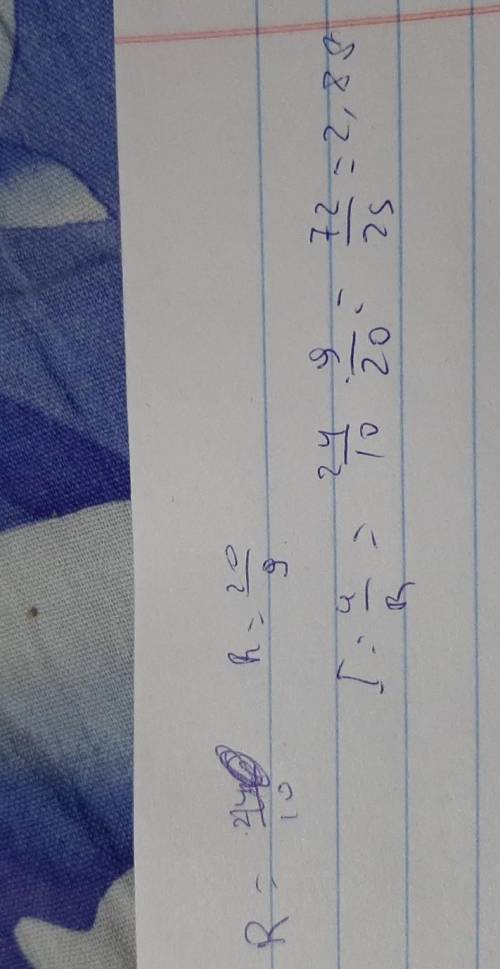 R = 24/10 R = 20/9
I = U/R = 24/10 · 9/20 = 72/25 = 2,88